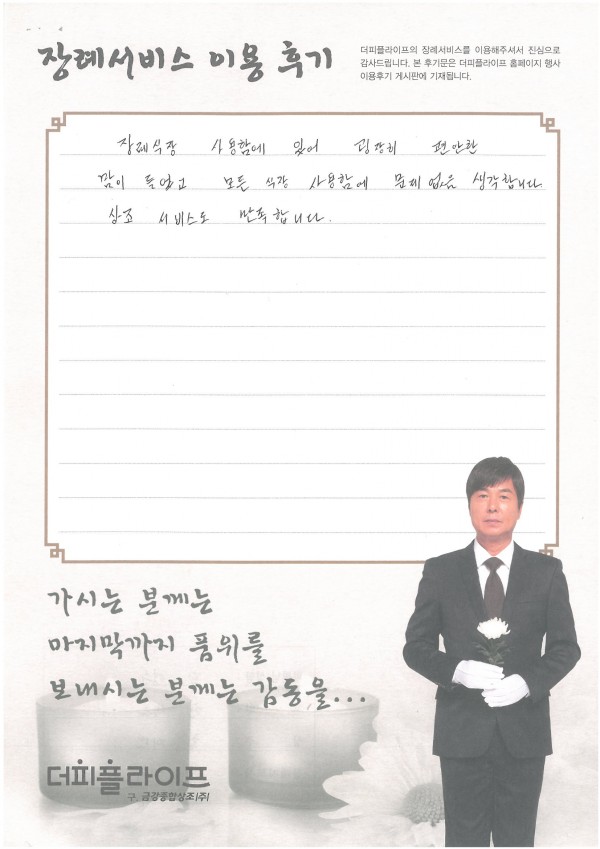 장례서비스 이용 후기
더피플라이프의 장례서비스를 이용해주셔서 진심으로
감사드립니다. 본 후기문은 더피플라이프 홈페이지 행사
이용후기 게시판에 기재됩니다.
장례식장 사용함에 있어 굉장히 편안한
감이 들었고 모든 식장 사용함에 문제없음 생각합니다.
상조 서비스도 만족합니다.
가시는 분께는
마지막까지 품위를
보내시는 분께는 감동을...
더피플라이프
구. 금강종합상조(주)